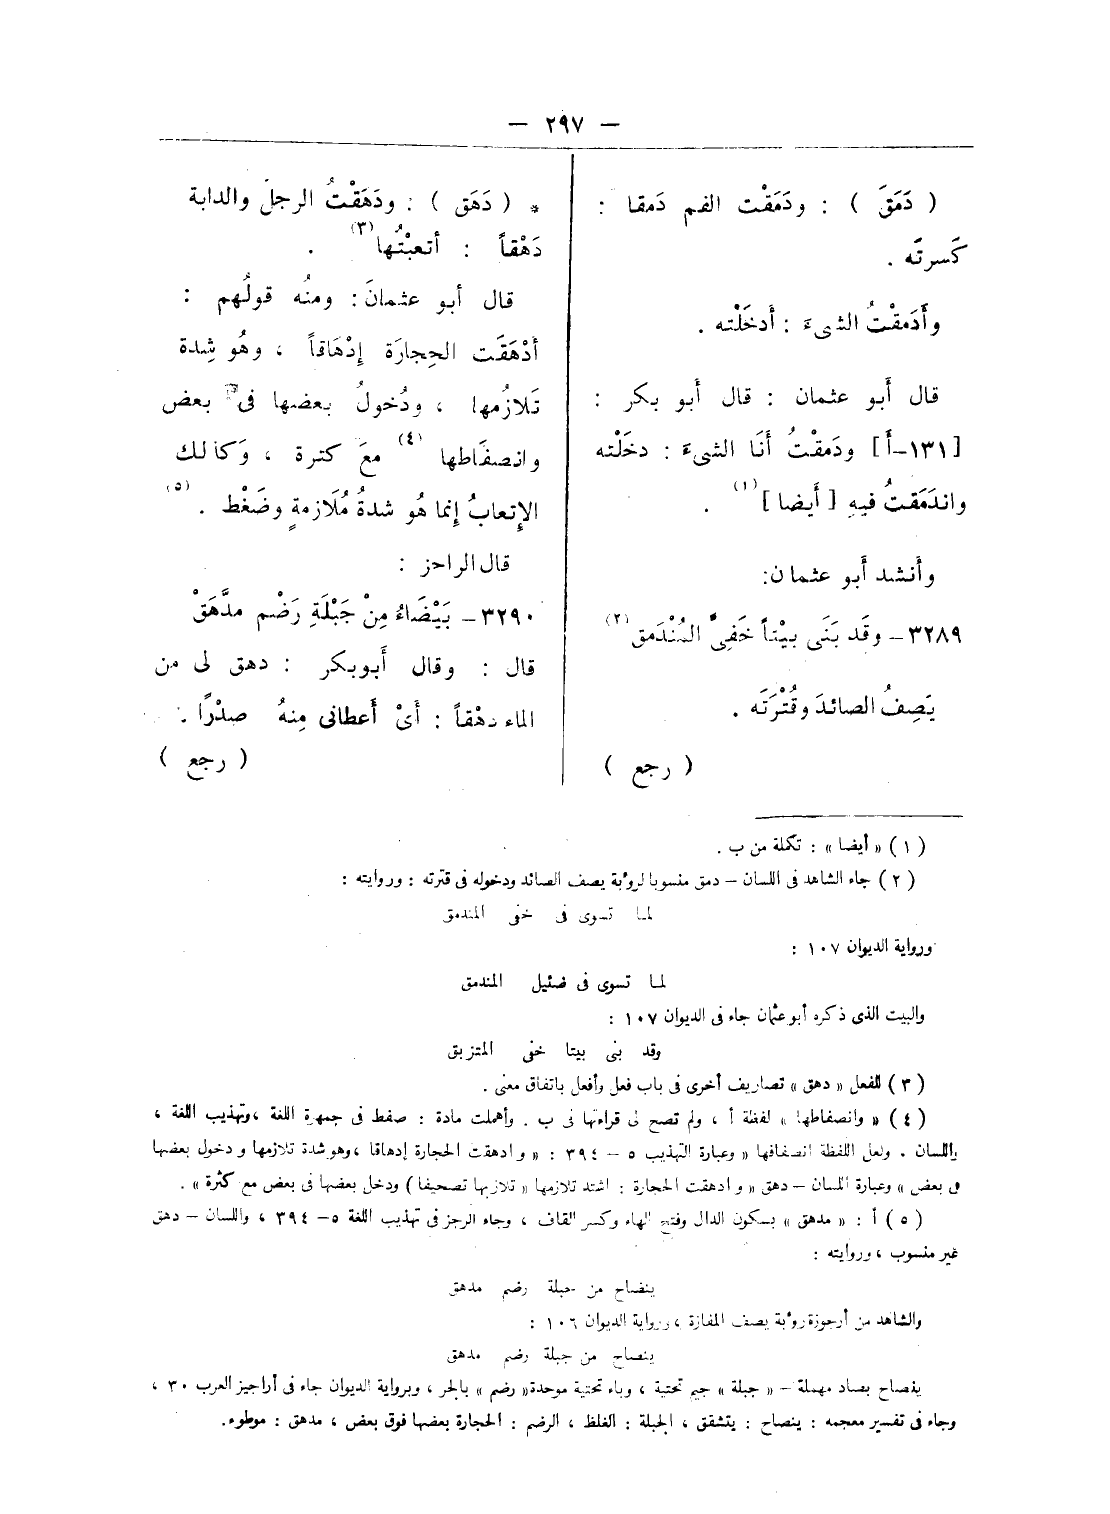 — ٢٩٧ —
( دَمَقَ ) : ودَمَقْت الفم دَمقا :
كَسرتَه .
وأَدَمقْتُ الشىءَ : أَدخَلْته .
قال أَبو عثمان : قال أَبو بكر :
[١٣١–أ] ودَمقْتُ أَنَا الشىءَ : دخَلْته
واندَمَقتُ فيهِ [ أَيضا ](١) .
وأَنشد أَبو عثمان:
٣٢٨٩– وقَد بَنَى بيْتاً خَفِىَّ المُنْدَمق(٢)
يَصِفُ الصائدَ وقُتْرَتَه .
( رجع )
* ( دَهَق ) : ودَهَقْتُ الرجلَ والدابة
دَهْقاً : أتعبْتُها(٣) .
قال أبو عثمانَ: ومنُه قولُهم :
أدْهَقَت الحِجارَة إدْهَاقاً ، وهُو شِدة
تَلازُمها ، ودُخولُ بعضها فى بعض
وانصفَاطها(٤) معَ كثرة ، وَكذلك
الإتعابُ إنما هُو شدةُ مُلَازمةٍ وضَغْط .(٥)
قال الراجز :
٣٢٩٠– بَيْضَاءُ مِنْ جَبْلَةِ رَضْم مدَّهَقْ
قال : وقال أَبوبكر : دهق لى من
الماء دهْقاً : أَىْ أَعطانى مِنهُ صدْرًا .
( رجع )
(١) « أيضا » : تكملة من ب .
(٢) جاء الشاهد فى اللسان – دمق منسوبا لرؤبة يصف الصائد ودخوله فى قترته : وروايته :
لما تسوى فى خفى المندمق
ورواية الديوان ١٠٧ :
لما تسوى فى ضئيل المندمق
والبيت الذى ذكره أبو عثمان جاء فى الديوان ١٠٧ :
وقد بنى بيتا خفى المتزبق
(٣) للفعل « دهق » تصاريف أخرى فى باب فعل وأفعل باتفاق معنى .
(٤) « وانصفاطها » لفظة أ ، ولم تصح لى قراءتها فى ب . وأهملت مادة : صفط فى جمهرة اللغة ، وتهذيب اللغة ،
واللسان . ولعل اللفظة انصفافها « وعبارة التهذيب ٥ – ٣٩٤ : « وادهقت الحجارة إدهاقا ، وهو شدة تلازمها ودخول بعضها
فى بعض » وعبارة اللسان – دهق « وادهقت الحجارة : اشتد تلازمها « تلازبها تصحيفا ) ودخل بعضها فى بعض مع كثرة » .
(٥) أ : « مدهق » بسكون الدال وفتح الهاء وكسر القاف ، وجاء الرجز فى تهذيب اللغة ٥– ٣٩٤ ، واللسان – دهق
غير منسوب ، وروايته :
ينضاح من جبلة رضم مدهق
والشاهد من أرجوزة رؤبة يصف المفازة ، ورواية الديوان ١٠٦ :
ينصاح من جبلة رضم مدهق
ينصاح بصاد مهملة – « جبلة » جيم تحتية ، وباء تحتية موحدة« رضم » بالجر ، وبرواية الديوان جاء فى أراجيز العرب ٣٠ ،
وجاء فى تفسير معجمه : ينصاح : يتشقق ، الجبلة : الغلظ ، الرضم : الحجارة بعضها فوق بعض ، مدهق : موطوء.